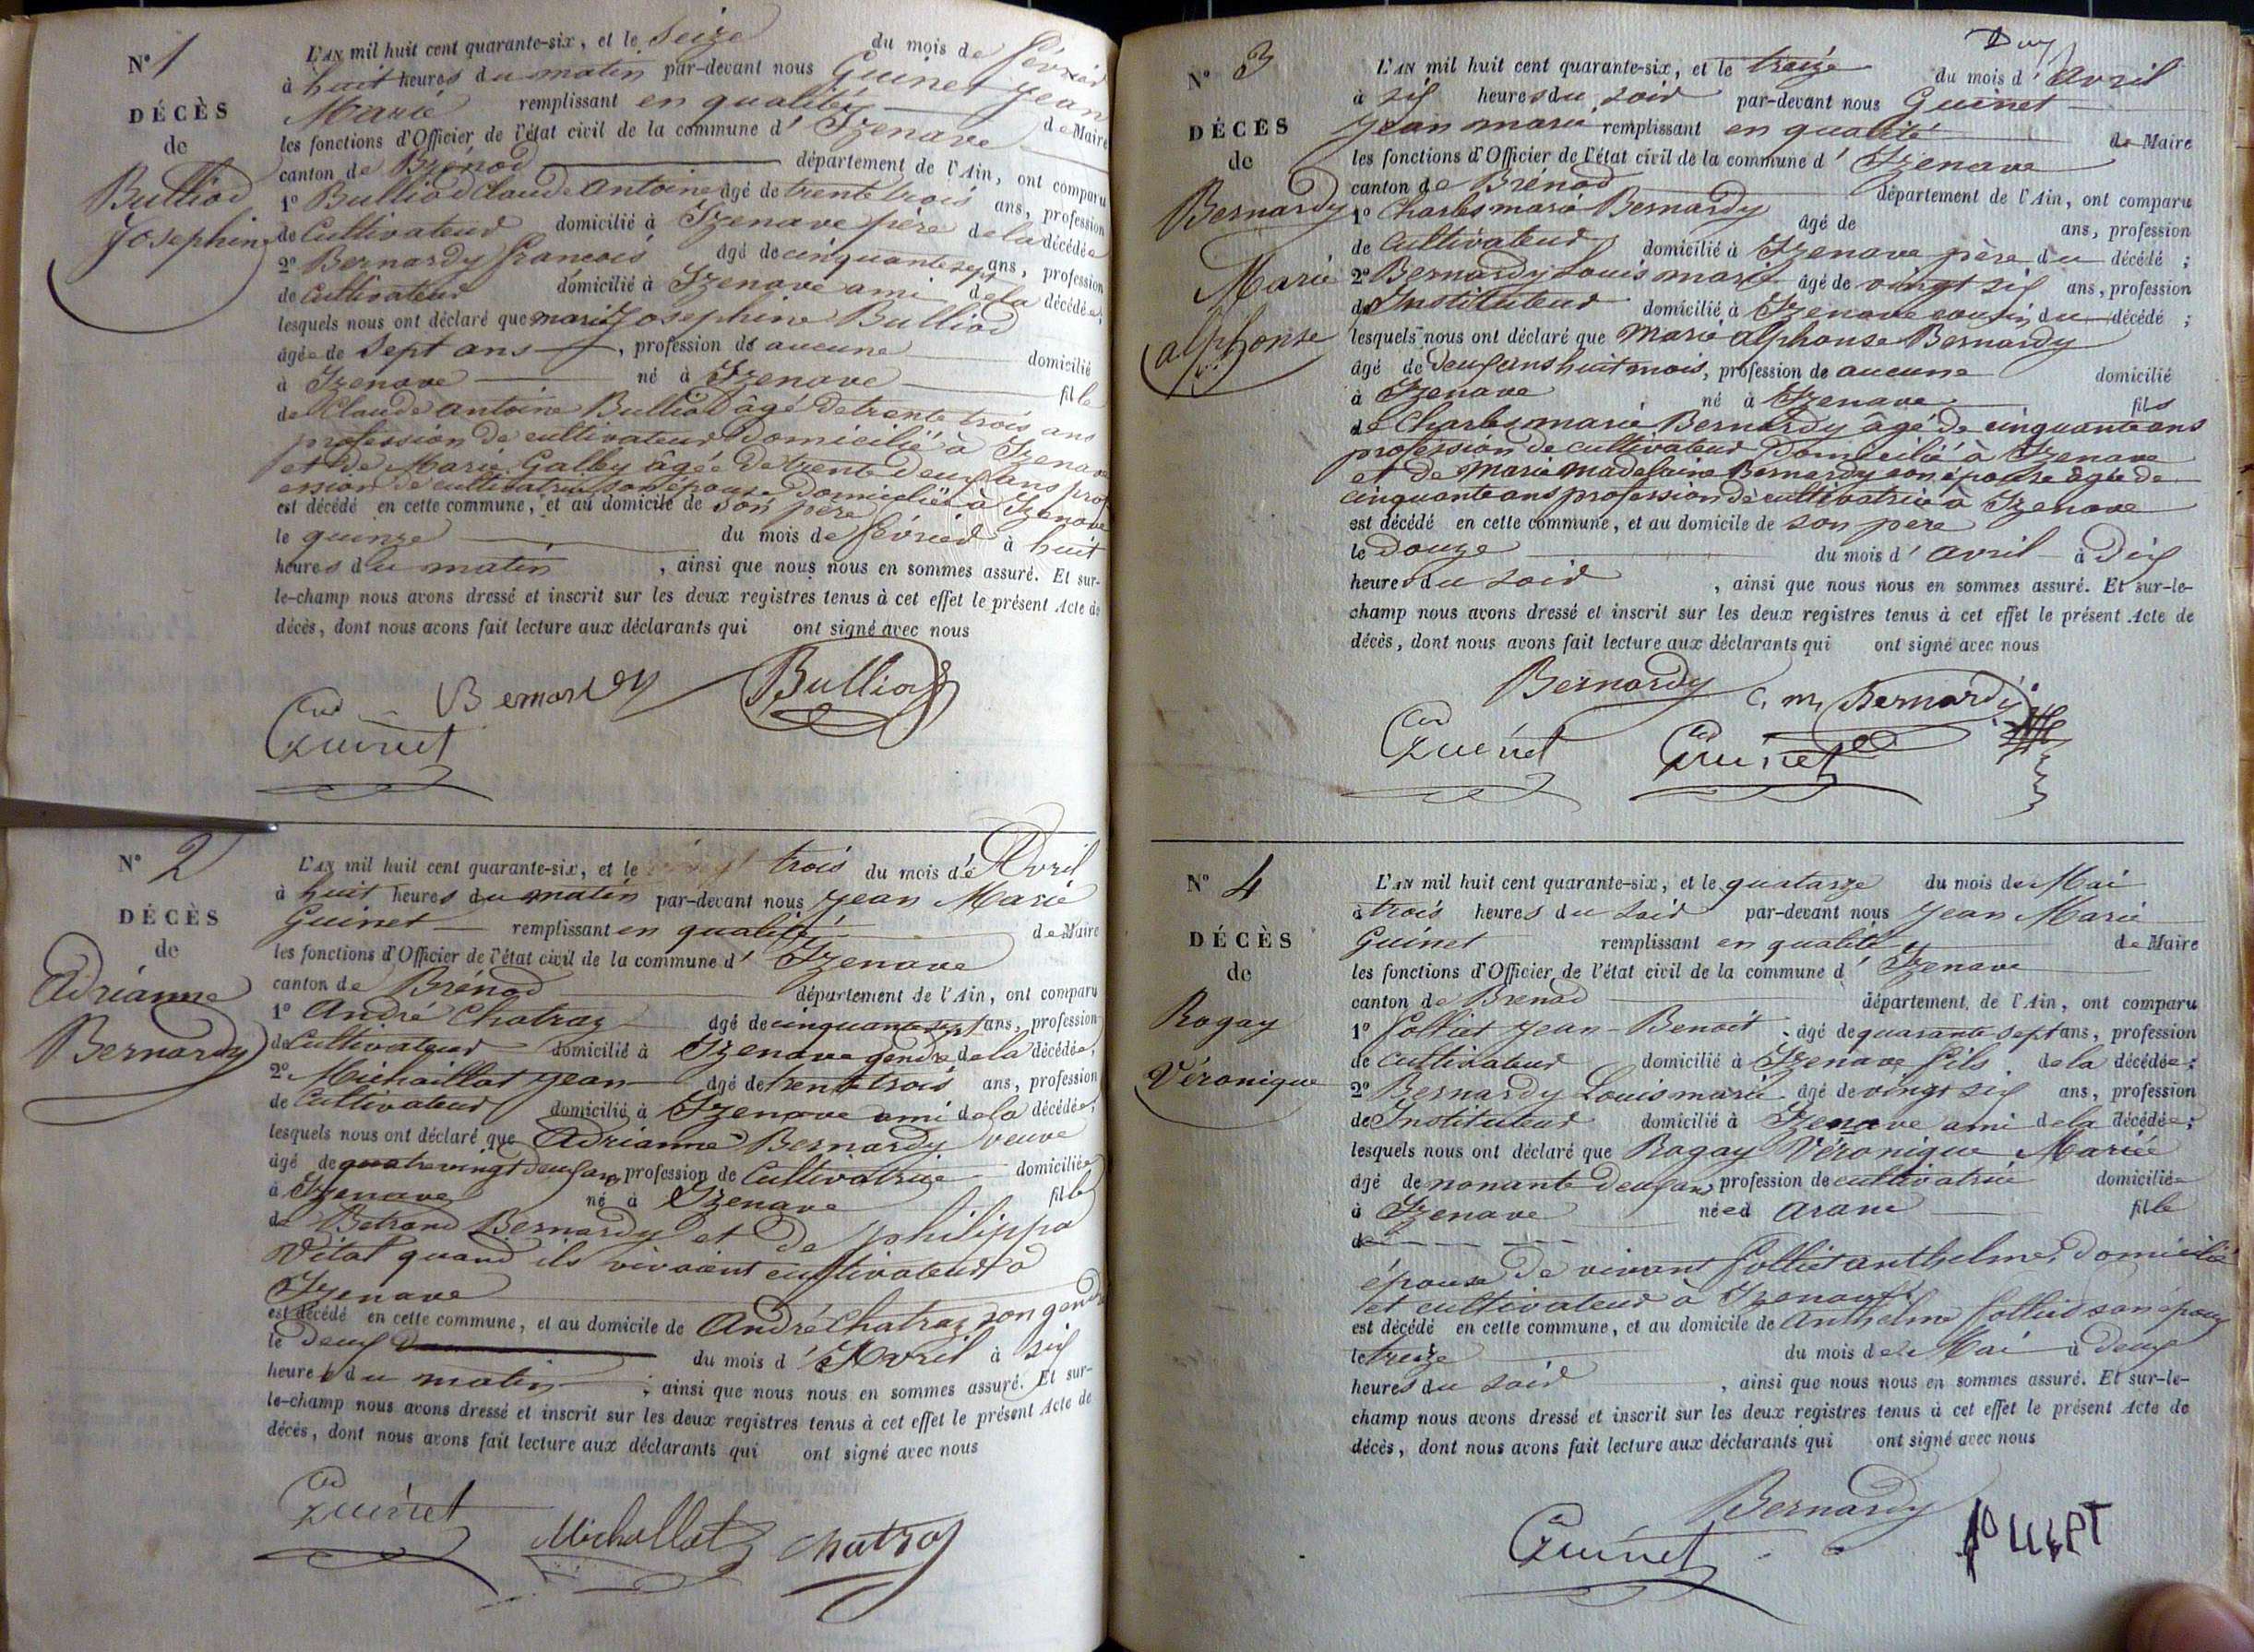 N° 1
DÉCÈS
de
Bulliod
Josephine
L'AN mil huit cent quarante-six, et le Seize du mois de février
à huit heures du matin par-devant nous Guinet Jean
Marie remplissant en qualité de Maire
les fonctions d'Officier de l'état civil de la commune d' Izenave
canton de Brénod département de l'Ain, ont comparu
1° Bulliod Claude Antoine âgé de trente trois ans, profession
de Cultivateur domicilié à Izenave père de la décédée
2° Bernardy francois âgé de cinquante sept ans, profession
de Cultivateur domicilié à Izenave ami de la décédée;
lesquels nous ont déclaré que marie Josephine Bulliod
âgée de Sept ans, profession de aucune domicilié
à Izenave né à Izenave fille
de Claude antoine Bulliod âgé de trente trois ans
profession de cultivateur domicilié à Izenave
et de Marie Galley âgée de trente deux ans prof
ession de cultivatrice son épouse domicilié à Izenave
est décédé en cette commune, et au domicile de son père
le quinze du mois de février à huit
heures du matin, ainsi que nous nous en sommes assuré. Et sur-
le-champ nous avons dressé et inscrit sur les deux registres tenus à cet effet le présent Acte de
décès, dont nous avons fait lecture aux déclarants qui ont signé avec nous
Bernardy Bulliod
Guinet
N° 2
DÉCÈS
de
Adrianne
Bernardy
L'AN mil huit cent quarante-six, et le trois du mois d'Avril
à huit heures du matin par-devant nous Jean Marie
Guinet remplissant en qualité de Maire
les fonctions d'Officier de l'état civil de la commune d' Izenave
canton de Brénod département de l'Ain, ont comparu
1° André Chatraz âgé de cinquante six ans, profession
de Cultivateur domicilié à Izenave gendre de la décédée;
2° Michaillat Jean âgé de trente trois ans, profession
de Cultivateur domicilié à Izenave ami de la décédée;
lesquels nous ont déclaré que Adrianne Bernardy veuve
âgé de quatre vingt deux ans profession de Cultivatrice domiciliée
à Izenave né à Izenave fille
de Betrand Bernardy et de philippa
Vital quand ils vivaient cultivateurs à
Izenave
est décédé en cette commune, et au domicile de André Chatraz son gendre
le deux du mois d'Avril à six
heures du matin; ainsi que nous nous en sommes assuré. Et sur-
le-champ nous avons dressé et inscrit sur les deux registres tenus à cet effet le présent Acte de
décès, dont nous avons fait lecture aux déclarants qui ont signé avec nous
Guinet Michallat Chatraz
N° 3
DÉCÈS
de
Bernardy
Marie
alphonse
L'AN mil huit cent quarante-six, et le treize du mois d'Avril
à six heures du soir par-devant nous Guinet
Jean marie remplissant en qualité de Maire
les fonctions d'Officier de l'état civil de la commune d' Izenave
canton de Brénod département de l'Ain, ont comparu
1° Charles marie Bernardy âgé de ans, profession
de Cultivateur domicilié à Izenave père du décédé;
2° Bernardy Louis marie âgé de vingt six ans, profession
d'Instituteur domicilié à Izenave cousin du décédé;
lesquels nous ont déclaré que Marie Alphonse Bernardy
âgé de deux ans huit mois, profession de aucune domicilié
à Izenave né à Izenave fils
de Charles marie Bernardy âgé de cinquante ans
profession de cultivateur domicilié à Izenave
et de Marie Madelaine Bernardy son épouse âgée de
cinquante ans profession de cultivatrice à Izenave
est décédé en cette commune, et au domicile de son père
le Douze du mois d'avril à Dix
heures du soir, ainsi que nous nous en sommes assuré. Et sur-le-
champ nous avons dressé et inscrit sur les deux registres tenus à cet effet le présent Acte de
décès, dont nous avons fait lecture aux déclarants qui ont signé avec nous
Bernardy C. m. Bernardy
Guinet Guinet
N° 4
DÉCÈS
de
Rogay
Véronique
L'AN mil huit cent quarante-six, et le quatorze du mois de Mai
à trois heures du soir par-devant nous Jean Marie
Guinet remplissant en qualité de Maire
les fonctions d'Officier de l'état civil de la commune d' Izenave
canton de Brenod département de l'Ain, ont comparu
1° folliet Jean-Benoit âgé de quarante sept ans, profession
de cultivateur domicilié à Izenave fils de la décédée;
2° Bernardy Louis marie âgé de vingt six ans, profession
de Instituteur domicilié à Izenave ami de la décédée;
lesquels nous ont déclaré que Rogay Véronique Mariée
âgé de nonante deux ans, profession de cultivatrice domiciliée
à Izenave née à Arane fille
de
épouse de vivant folliet anthelme, domicilié
et cultivateur à Izenave
est décédé en cette commune, et au domicile de Anthelme folliet son époux
le treize du mois de Mai à deux
heures du soir, ainsi que nous nous en sommes assuré. Et sur-le-
champ nous avons dressé et inscrit sur les deux registres tenus à cet effet le présent Acte de
décès, dont nous avons fait lecture aux déclarants qui ont signé avec nous
Bernardy
Guinet